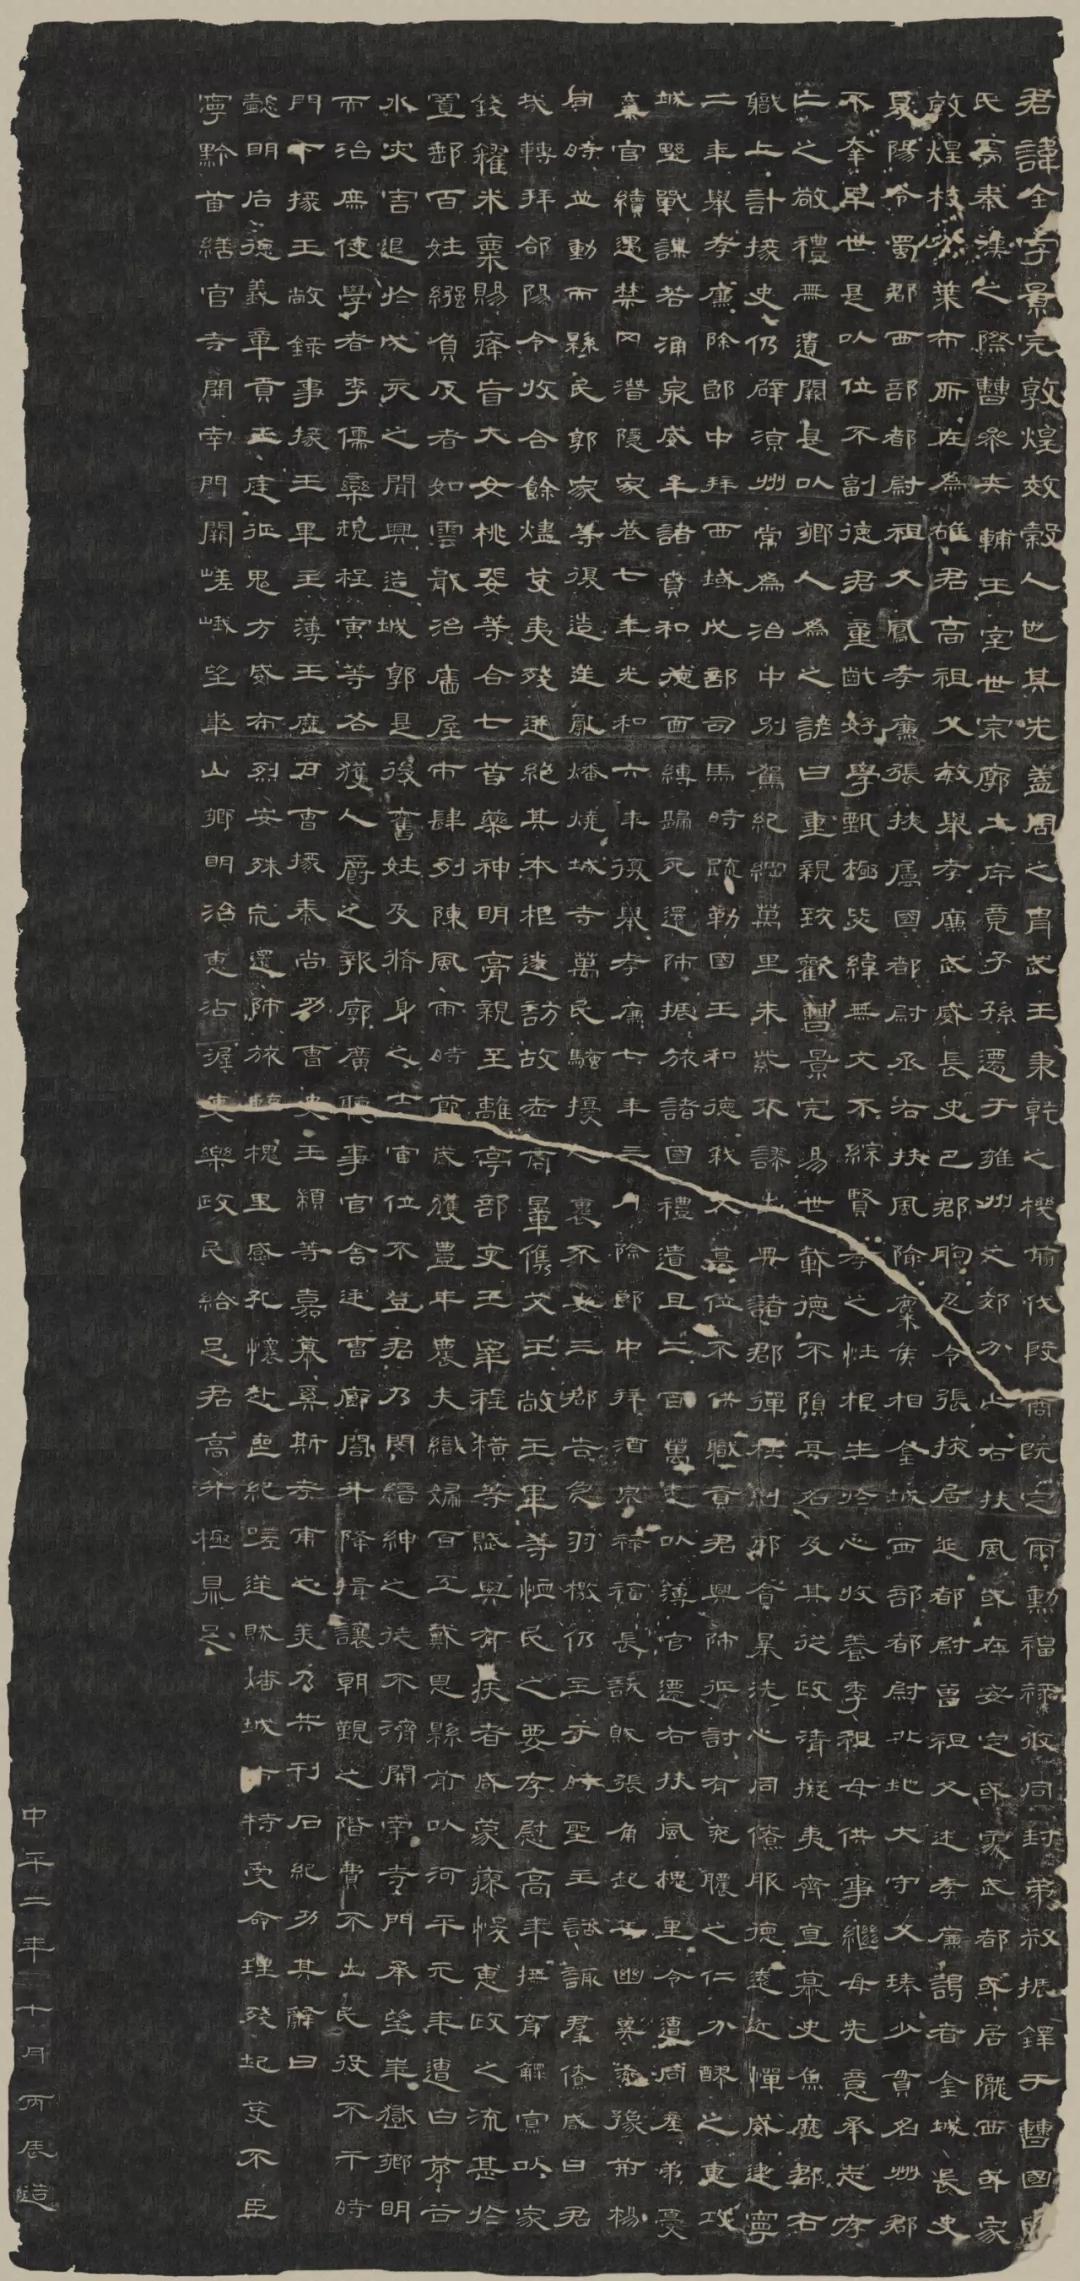 君諱全字景完敦煌效穀人也其先蓋周之胄武王秉乾之機翦伐殷商既定爾勳福祿攸同封弟叔振鐸于曹國因
氏焉秦漢之際曹參夾輔王室世宗廓土斥竟子孫遷于雍州之郊分止右扶風或在安定或處武都或居隴西或家
敦煌枝分葉布所在為雄君高祖父敏舉孝廉武威長史巴郡朐忍令張掖居延都尉曾祖父述孝廉謁者金城長史
夏陽令蜀郡西部都尉祖父鳳孝廉張掖屬國都尉丞右扶風隃麋侯相金城西部都尉北地大守父琫少貫名州郡
不幸早世是以位不副德君童齔好學甄極毖緯無文不綜賢孝之性根生於心收養季祖母供事繼母先意承志存
亡之敬禮無遺闕是以鄉人為之諺曰重親致歡曹景完易世載德不隕其名及其從政清擬夷齊直慕史魚歷郡右
職上計掾史仍辟涼州常為治中別駕紀綱萬里朱紫不謬出典諸郡彈枉糾邪貪暴洗心同僚服德遠近憚威建寧
二年舉孝廉除郎中拜西域戊部司馬時疏勒國王和德弒父篡位不供職貢君興師征討有兗膿之仁分醪之惠攻
城野戰謀若涌泉威牟諸賁和德面縛歸死還師振旅諸國禮遺且二百萬悉以薄官遷右扶風槐里令遭同產弟憂
棄官續遇禁冈潛隱家巷七年光和六年復舉孝廉七年三月除郎中拜酒泉祿福長訞賊張角起兵幽冀兗豫荊楊
同時並動而縣民郭家等復造逆亂燔燒城寺萬民騷擾人裹不安三郡告急羽檄仍至于時聖主諮諏群僚咸曰君
哉轉拜郃陽令收合餘燼芟夷殘迸絕其本根遂訪故老商量儁艾王敞王畢等恤民之要存慰高年撫育鰥寡以家
錢糴米粟賜癃盲大女桃婓等合七首藥神明膏親至離亭部吏王宰程橫等賦與有疾者咸蒙瘳悛惠政之流甚於
置郵百姓繈負反者如雲戢治廧屋市肆列陳風雨時節歲獲豐年農夫織婦百工戴恩縣前以河平元年遭白茅谷
水灾害退於戊亥之間興造城郭是後舊姓及脩身之士官位不登君乃閔縉紳之徒不濟開南寺門承望華嶽鄉明
而治庶使學者李儒欒規程寅等各獲人爵之報廓廣聽事官舍廷曹廊閣升降揖讓朝覲之階費不出民役不干時
門下掾王敞錄事掾王畢主薄王歷戶曹掾秦尚功曹史王顓等嘉慕奚斯考甫之美乃共刊石紀功其辭曰
懿明后德義章貢王庭征鬼方威布烈安殊巟還師旅臨槐里感孔懷赴喪紀嗟逆賊燔城市特受命理殘圮芟不臣
寧黔首繕官寺開南門闕嵯峨望華山鄉明治惠沾渥吏樂政民給足君高升極鼎足
中平二年十月丙辰造